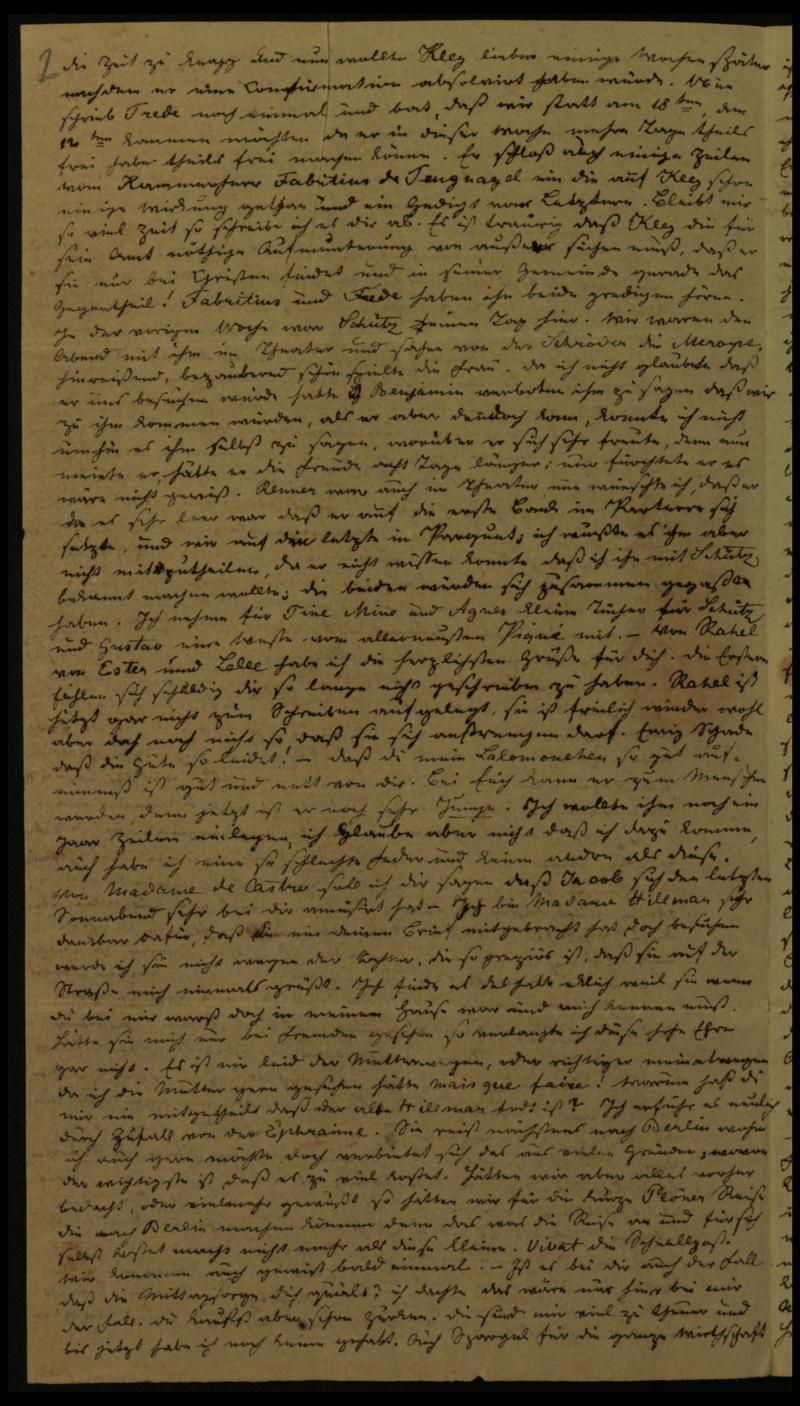 2 die Zeit zu knapp und nun wollte Kley lieber einige Wochen später
nachdem er eine Confirmation absolvirt haben würde. Nun
schrieb Trede noch einmal und bat, daß wir statt am 18ten, den
12ten kommen möchten da er in dieser Woche mehre Tage theils
frei habe theils frei machen könne. Er schloß auch einige Zeilen
vom Kammerherrn Fabricius de Tengnagel ein die auf Kley schon
einige Wirkung gethan und ein Gedicht vom Letztern. Bleibt mir
so viel Zeit so schreibe ich es dir ab. Es ist traurig daß Kley die für
sein Amt nöthige Aufmunterung von außen suchen muß, daß er
sie nur bei Christen findet und in seiner Gemeinde gerade das
Gegentheil! Fabricius und Trede haben ihn beide predigen hören.
In der vorigen Woche war Schütz einen Tag hier. Wir waren den
Abend mit ihm im Theater und sahen von der Schröder die Merope,
hinreißend, bezaubernd schön spielte die Frau. Da ich nicht glaubte daß
er uns besuchen würde hatte ich Benjamin verboten ihm zu sagen daß wir
zu ihm kommen würden, als er aber dennoch kam, konnte ich nicht
umhin es ihm selbst zu sagen, worüber er sich sehr freute, denn nun
meinte er, hätte er die Freude acht Tage länger; nur fürchtete er es
wäre nicht gewiß. Renner war auch im Theater, nun wünschte ich, daß er
da es sehr leer war daß er auf die erste Bank im Parterre sich
setzte, und wir auf die letzte in Parquet; ich wußte es ihm aber
nicht mitzutheilen, da er nicht wissen konnte daß ich ihn mit Schütz
bekannt machen wollte; die beiden würden sich zusammen gepaßt
haben. Ich nehme für Tine Mine und Agnes kleine Tücher für Schütz
und Gustav eine Weste vom allerneusten Piqué mit. – Von Rahel
von Ester und Lelle habe ich die herzlichsten Grüße für dich. Die Erstern
fühlen sich schuldig dir so lange nicht geschrieben zu haben. Rahel ist
jetzt gar nicht zum Schreiben aufgelegt, sie ist freilich wieder wohl
aber doch noch nicht so, daß sie sich anstrengen darf. Ewig Schade
daß die Gute so leidet! – daß du mein Salomonchen so gut auf-
nimmst ist gut und nett von dir. Bei Euch kann er zum Menschen
werden, denn jetzt ist er noch sehr Junge. Ich wollte ihm noch ein
paar Zeilen einlegen, ich glaube aber nicht daß ich dazu komme,
auch habe ich eine so schlechte Feder und keine andre als diese.
Von Madame de Castro soll ich dir sagen daß Jacob sich den letzten
Sonnabend sehr bei dir amüsirt hat – Ich bin Madame Hillmar sehr
dankbar dafür, daß sie mir deinen Brief mitgebracht hat, doch besuchen
werde ich sie nicht wegen der Tochter, die so preziös ist, daß sie auf der
Straße mich niemals grüßt. Ich finde es deshalb eklich weil sie wenn
du bei mir warst doch in meinem Hause war und mich kennen muß.
Hätte sie mich nur bei Fremden gesehen so verlangte ich diese hohe Ehre
gar nicht. Es ist mir leid der Mutter wegen, oder richtiger meinetwegen
da ich die Mutter gern gesehen hätte mais que faire! Warum hast du
mir nie mitgetheilt daß der alte Hillmar todt ist? Ich erfuhr es neulich
durch Zufall von der Ephraime. Sie reist nächstens nach Berlin wohin
ich auch gern möchte, doch verbietet sich das aus vielen Gründen, wovon
der wichtigste ist, daß es zu viel kostet. Hätten wir aber alles vorher
bedacht, oder vielmehr gewußt so hätten wir für die kurze Plöner Reise
die nach Berlin machen können denn das was die Reise an und für sich
selbst kostet macht nicht mehr als diese kleine. Vivat die Schnellpost!
Wir kommen auch gewiß bald einmal. – Ist es bei dir auch der Fall
daß die Mittagsorge dich quält? ich dachte das wäre nur hier bei mir
der Fall. Du kaufst aber schon Gurken. Die sind mir viel zu theuer und
bis jetzt habe ich noch keine gehabt. Auch Spargel für die ganze Wirthschaft